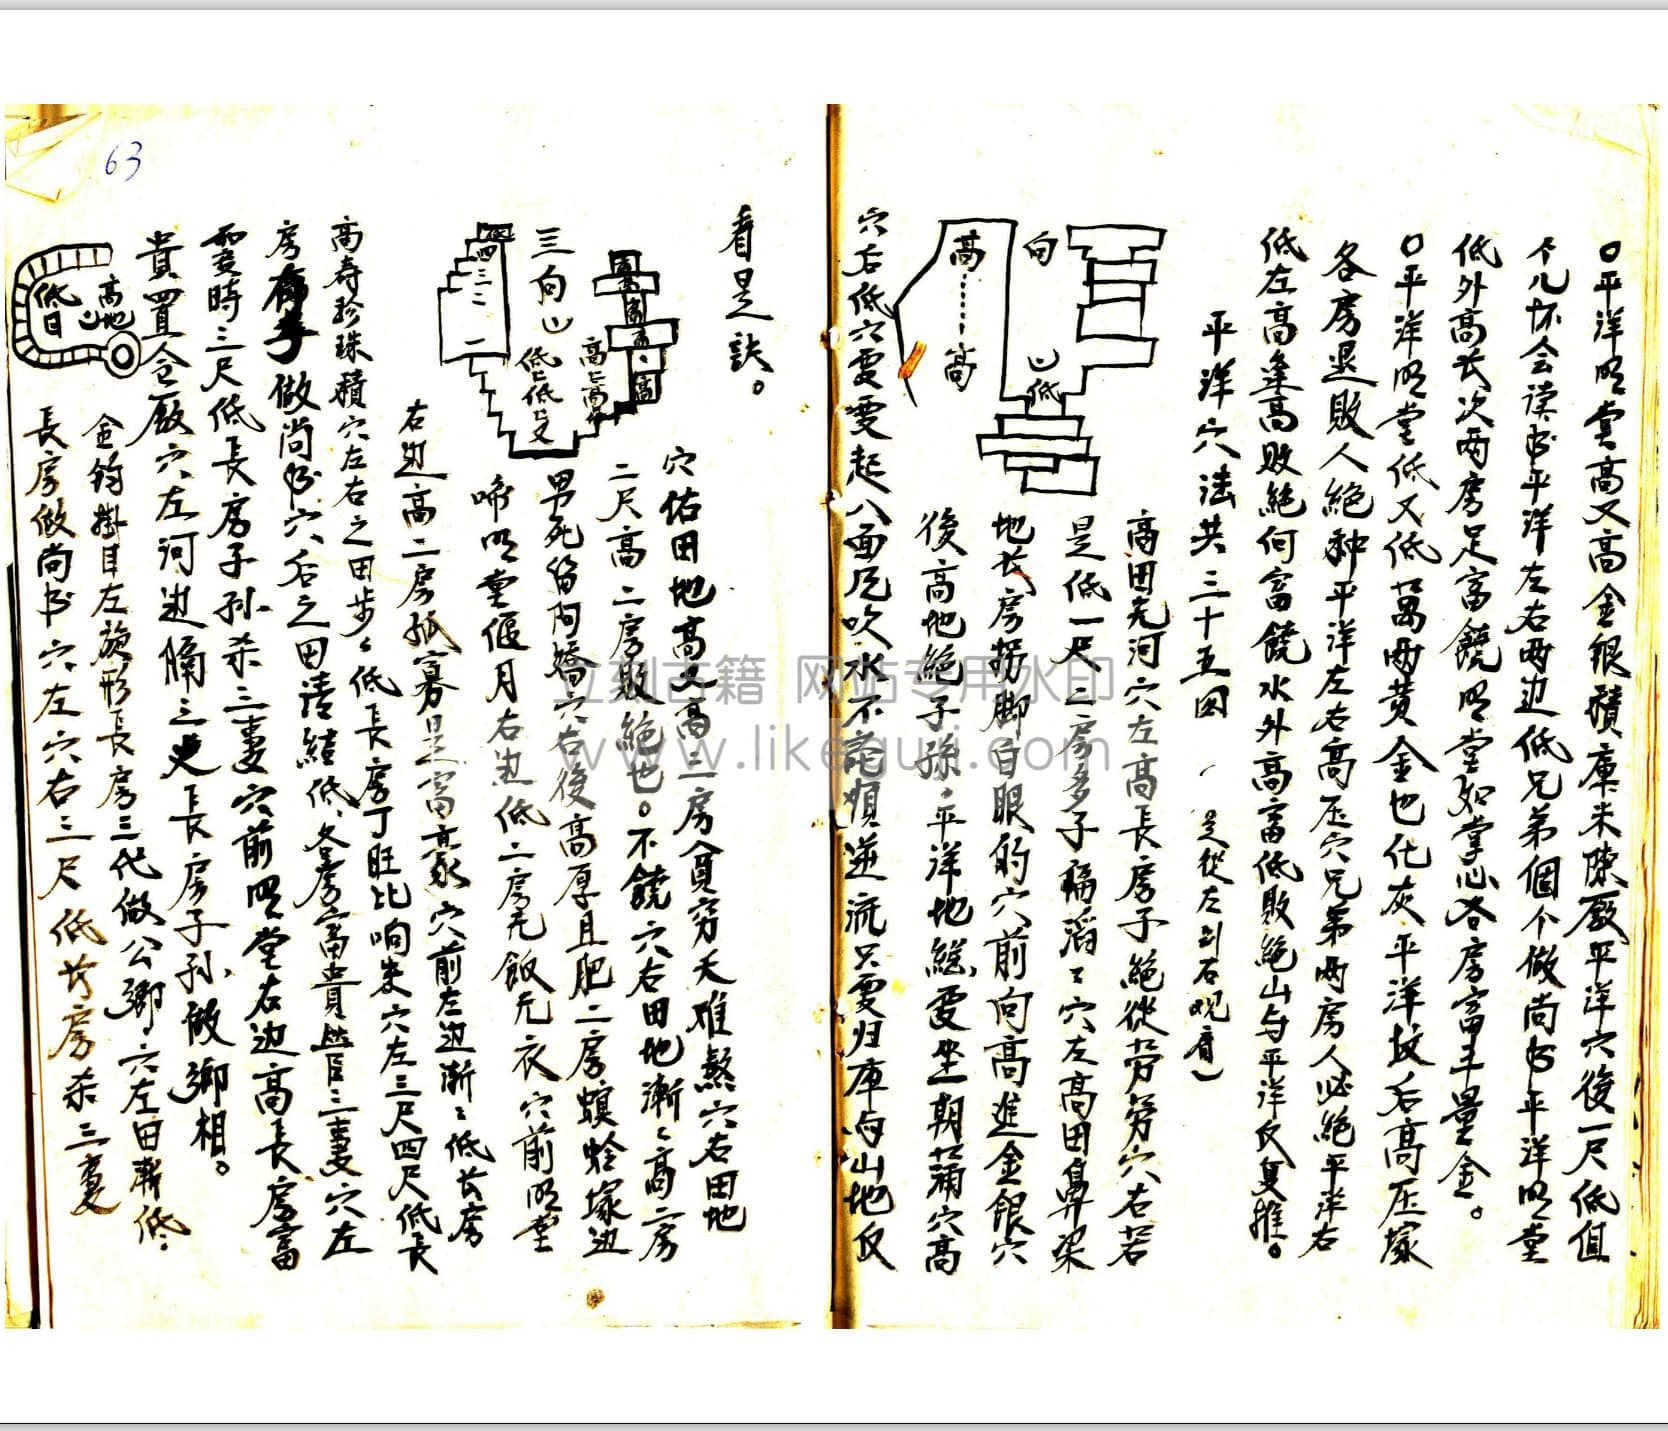 ○平洋明堂高又高金銀積庫米陳廒平洋穴後一尺低值
个儿怀会读书平洋左右两边低兄弟個个做尚书平洋明堂
低外高长次两房足富饒明堂如掌心各房富斗量金。
○平洋明堂低又低萬两黄金也化灰平洋坟后高压塚
各房退敗人絕种平洋左右高压穴兄弟两房人必絕平洋右
低左高逢高敗絕何富饒水外高富低敗絕山与平洋仅复推。
平洋穴法共三十五图
(是從左到右观看)
高田克河穴左高長房子絕從劳劳穴右若
是低一尺二房多子稲滔滔穴左高田鼻梁
地长房拐脚白眼的穴前向高進金銀穴
後高地絕子孫平洋地總要坐朝蒲穴高
向
高
高
低
穴后低穴要要起八面凡吹水不論順逆流只要归庫与山地仅
看是訣。
三向
四三二一
高高
低低又
高
穴佑田地高又高三房貧穷天难熬穴右田地
二尺高二房敗絕也。不饒穴右田地漸漸高二房
男死留阿嬌穴右後高厚且肥二房螟蛉塚边
啼明堂偃月右边低二房充飯充衣穴前明堂
右边高二房孤寡是富豪穴前左边漸漸低长房
高寿珍珠積穴左右之田步步低長房丁旺比响朱穴左三尺四尺低長
房存子做尚书穴后之田清結低各房富貴無官三妻穴左
要時三尺低長房子孙杀三妻穴前明堂右边高長房富
貴置仓廒穴左河边隔三丈長房子孙做鄉相。
金鈎掛耳左旋形長房三代做公鄉穴左田漸低
長房做尚书穴左穴右三尺低竹房杀三妻
高地
低田
63
立刻古籍 网站专用水印
www.likeguji.com